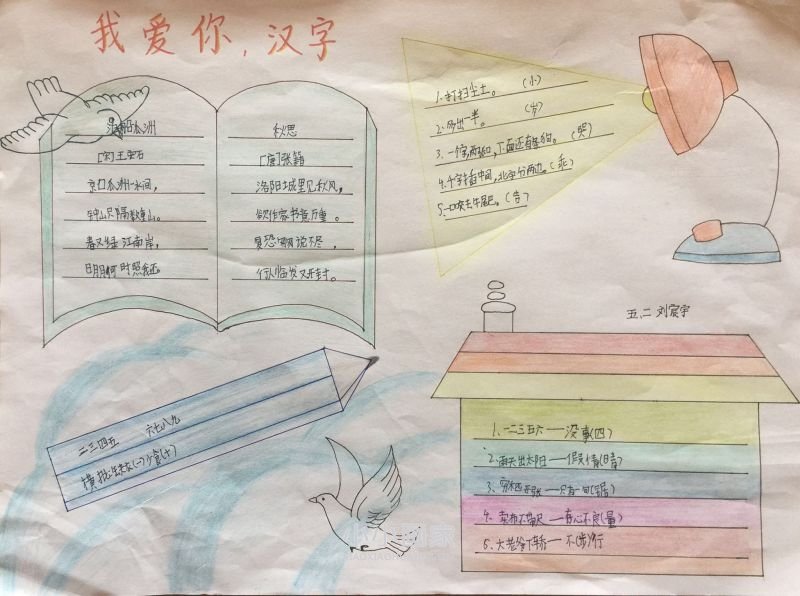 我爱你,汉字
泊船瓜洲
[宋]王安石
京口瓜洲一水间,
钟山只隔数重山。
春又绿江南岸,
明月何时照我还
秋思
[唐]张籍
洛阳城里见秋风,
欲作家书意万重。
复恐匆匆说不尽,
行人临发又开封。
1.打扫尘土。(小)
2.多出一半。(岁)
3.一字两张口,下面还有条狗。(哭)
4.千字插中间,北字分两边。(乖)
5.一口咬去牛尾巴。(告)
五、二 刘宸宇
二三四五 六七八九
横批:缺衣(一)少食(十)
1、一二三五六——没事(四)
2.雨天出太阳——假情(晴)
3.
4.卖布不带尺——存心不良(量)
5.大老爷下轿——不(步)行